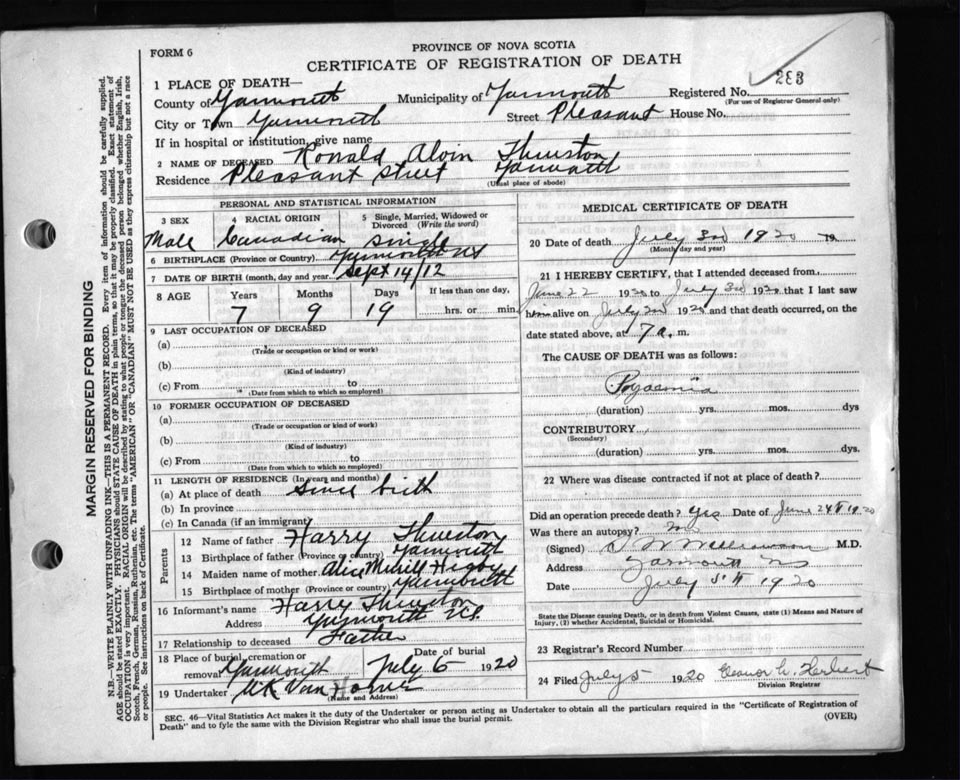 FORM 6
PROVINCE OF NOVA SCOTIA
CERTIFICATE OF REGISTRATION OF DEATH
283
1 PLACE OF DEATH—
County of Yarmouth Municipality of Yarmouth Registered No.
(For use of Registrar General only)
City or Town Yarmouth Street Pleasant House No.
If in hospital or institution, give name
2 NAME OF DECEASED Ronald Alvin Thurston
Residence Pleasant Street Yarmouth
(Usual place of abode)
PERSONAL AND STATISTICAL INFORMATION
3 SEX 4 RACIAL ORIGIN 5 Single, Married, Widowed or Divorced (Write the word)
Male Canadian Single
6 BIRTHPLACE (Province or Country) Yarmouth NS
7 DATE OF BIRTH (month, day and year) Sept 14/12
8 AGE Years Months Days If less than one day,
7 9 19 hrs. or min.
9 LAST OCCUPATION OF DECEASED
(a)
(Trade or occupation or kind or work)
(b)
(Kind of industry)
(c) From to
(Date from which to which so employed)
10 FORMER OCCUPATION OF DECEASED
(a)
(Trade or occupation or kind of work)
(b)
(Kind of industry)
(c) From to
(Date from which to which so employed)
11 LENGTH OF RESIDENCE (In years and months)
(a) At place of death Since birth
(b) In province
(c) In Canada (if an immigrant)
Parents
12 Name of father Harry Thurston
13 Birthplace of father (Province or country) Yarmouth
14 Maiden name of mother Alice Merrill Higby
15 Birthplace of mother (Province or country) Yarmouth
16 Informant's name Harry Thurston
Address Yarmouth N.S.
17 Relationship to deceased Father
18 Place of burial, cremation or removal Yarmouth Date of burial July 6 1920
19 Undertaker Van Horne
(Name and Address)
MEDICAL CERTIFICATE OF DEATH
20 Date of death July 3rd 1920 19
(Month day and year)
21 I HEREBY CERTIFY, that I attended deceased from
June 22 1920 to July 3rd 1920 that I last saw
him alive on July 2nd 1920 and that death occurred, on the
date stated above, at 7 a. m.
The CAUSE OF DEATH was as follows:
Pyaemia
(duration) yrs. mos. dys
CONTRIBUTORY
(Secondary)
(duration) yrs. mos. dys.
22 Where was disease contracted if not at place of death?
Did an operation precede death? Yes Date of June 24th 1920
Was there an autopsy? no
(Signed) Williamson M.D.
Address Yarmouth NS
Date July 5th 1920
State the Disease causing Death, or in death from Violent Causes, state (1) Means and Nature of Injury, (2) whether Accidental, Suicidal or Homicidal.
23 Registrar's Record Number
24 Filed July 5 1920 Eleanor Herbert
Division Registrar
SEC. 46—Vital Statistics Act makes it the duty of the Undertaker or person acting as Undertaker to obtain all the particulars required in the "Certificate of Registration of
Death" and to fyle the same with the Division Registrar who shall issue the burial permit.
(OVER)
MARGIN RESERVED FOR BINDING
N.B.—WRITE PLAINLY WITH UNFADING INK—THIS IS A PERMANENT RECORD. Every item of information should be carefully supplied.
AGE should be stated EXACTLY. PHYSICIANS should STATE CAUSE OF DEATH in plain terms, so that it may be properly classified. Exact statement of
OCCUPATION is very important. RACIAL ORIGIN will be described by stating to what people or tongue the deceased person belonged whether English, Irish,
Scotch, French, German, Russian, Ruthenian, etc. The terms "AMERICAN" OR "CANADIAN" MUST NOT BE USED as they express citizenship but not a race
or people. See instructions on back of Certificate.